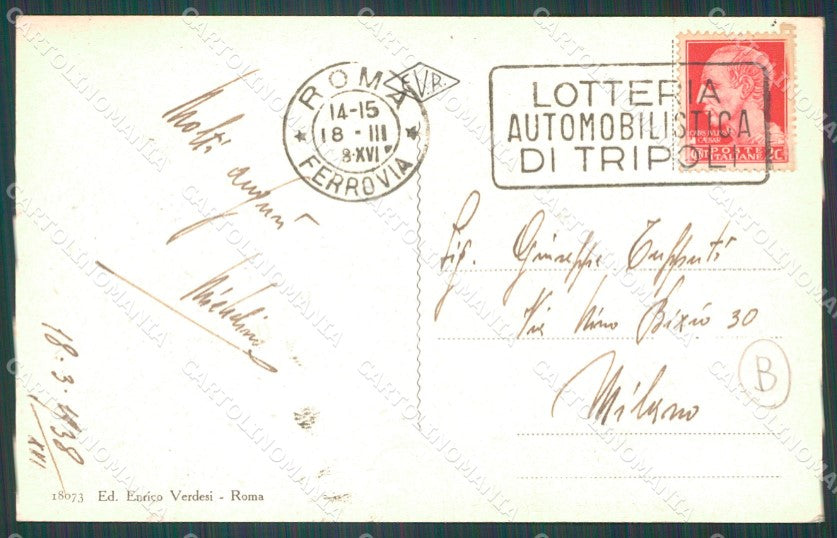 ROMA
FERROVIA
14-15
18 - III
8·XVI
V.R.
LOTTERIA
AUTOMOBILISTICA
DI TRIPOLI
POSTE
ITALIANE
Molti auguri
18·3·1938
XVI
Sig. Giuseppe
Via Nino Bixio 30
Milano
B
18073 Ed. Enrico Verdesi - Roma
CARTOLINOMANIA